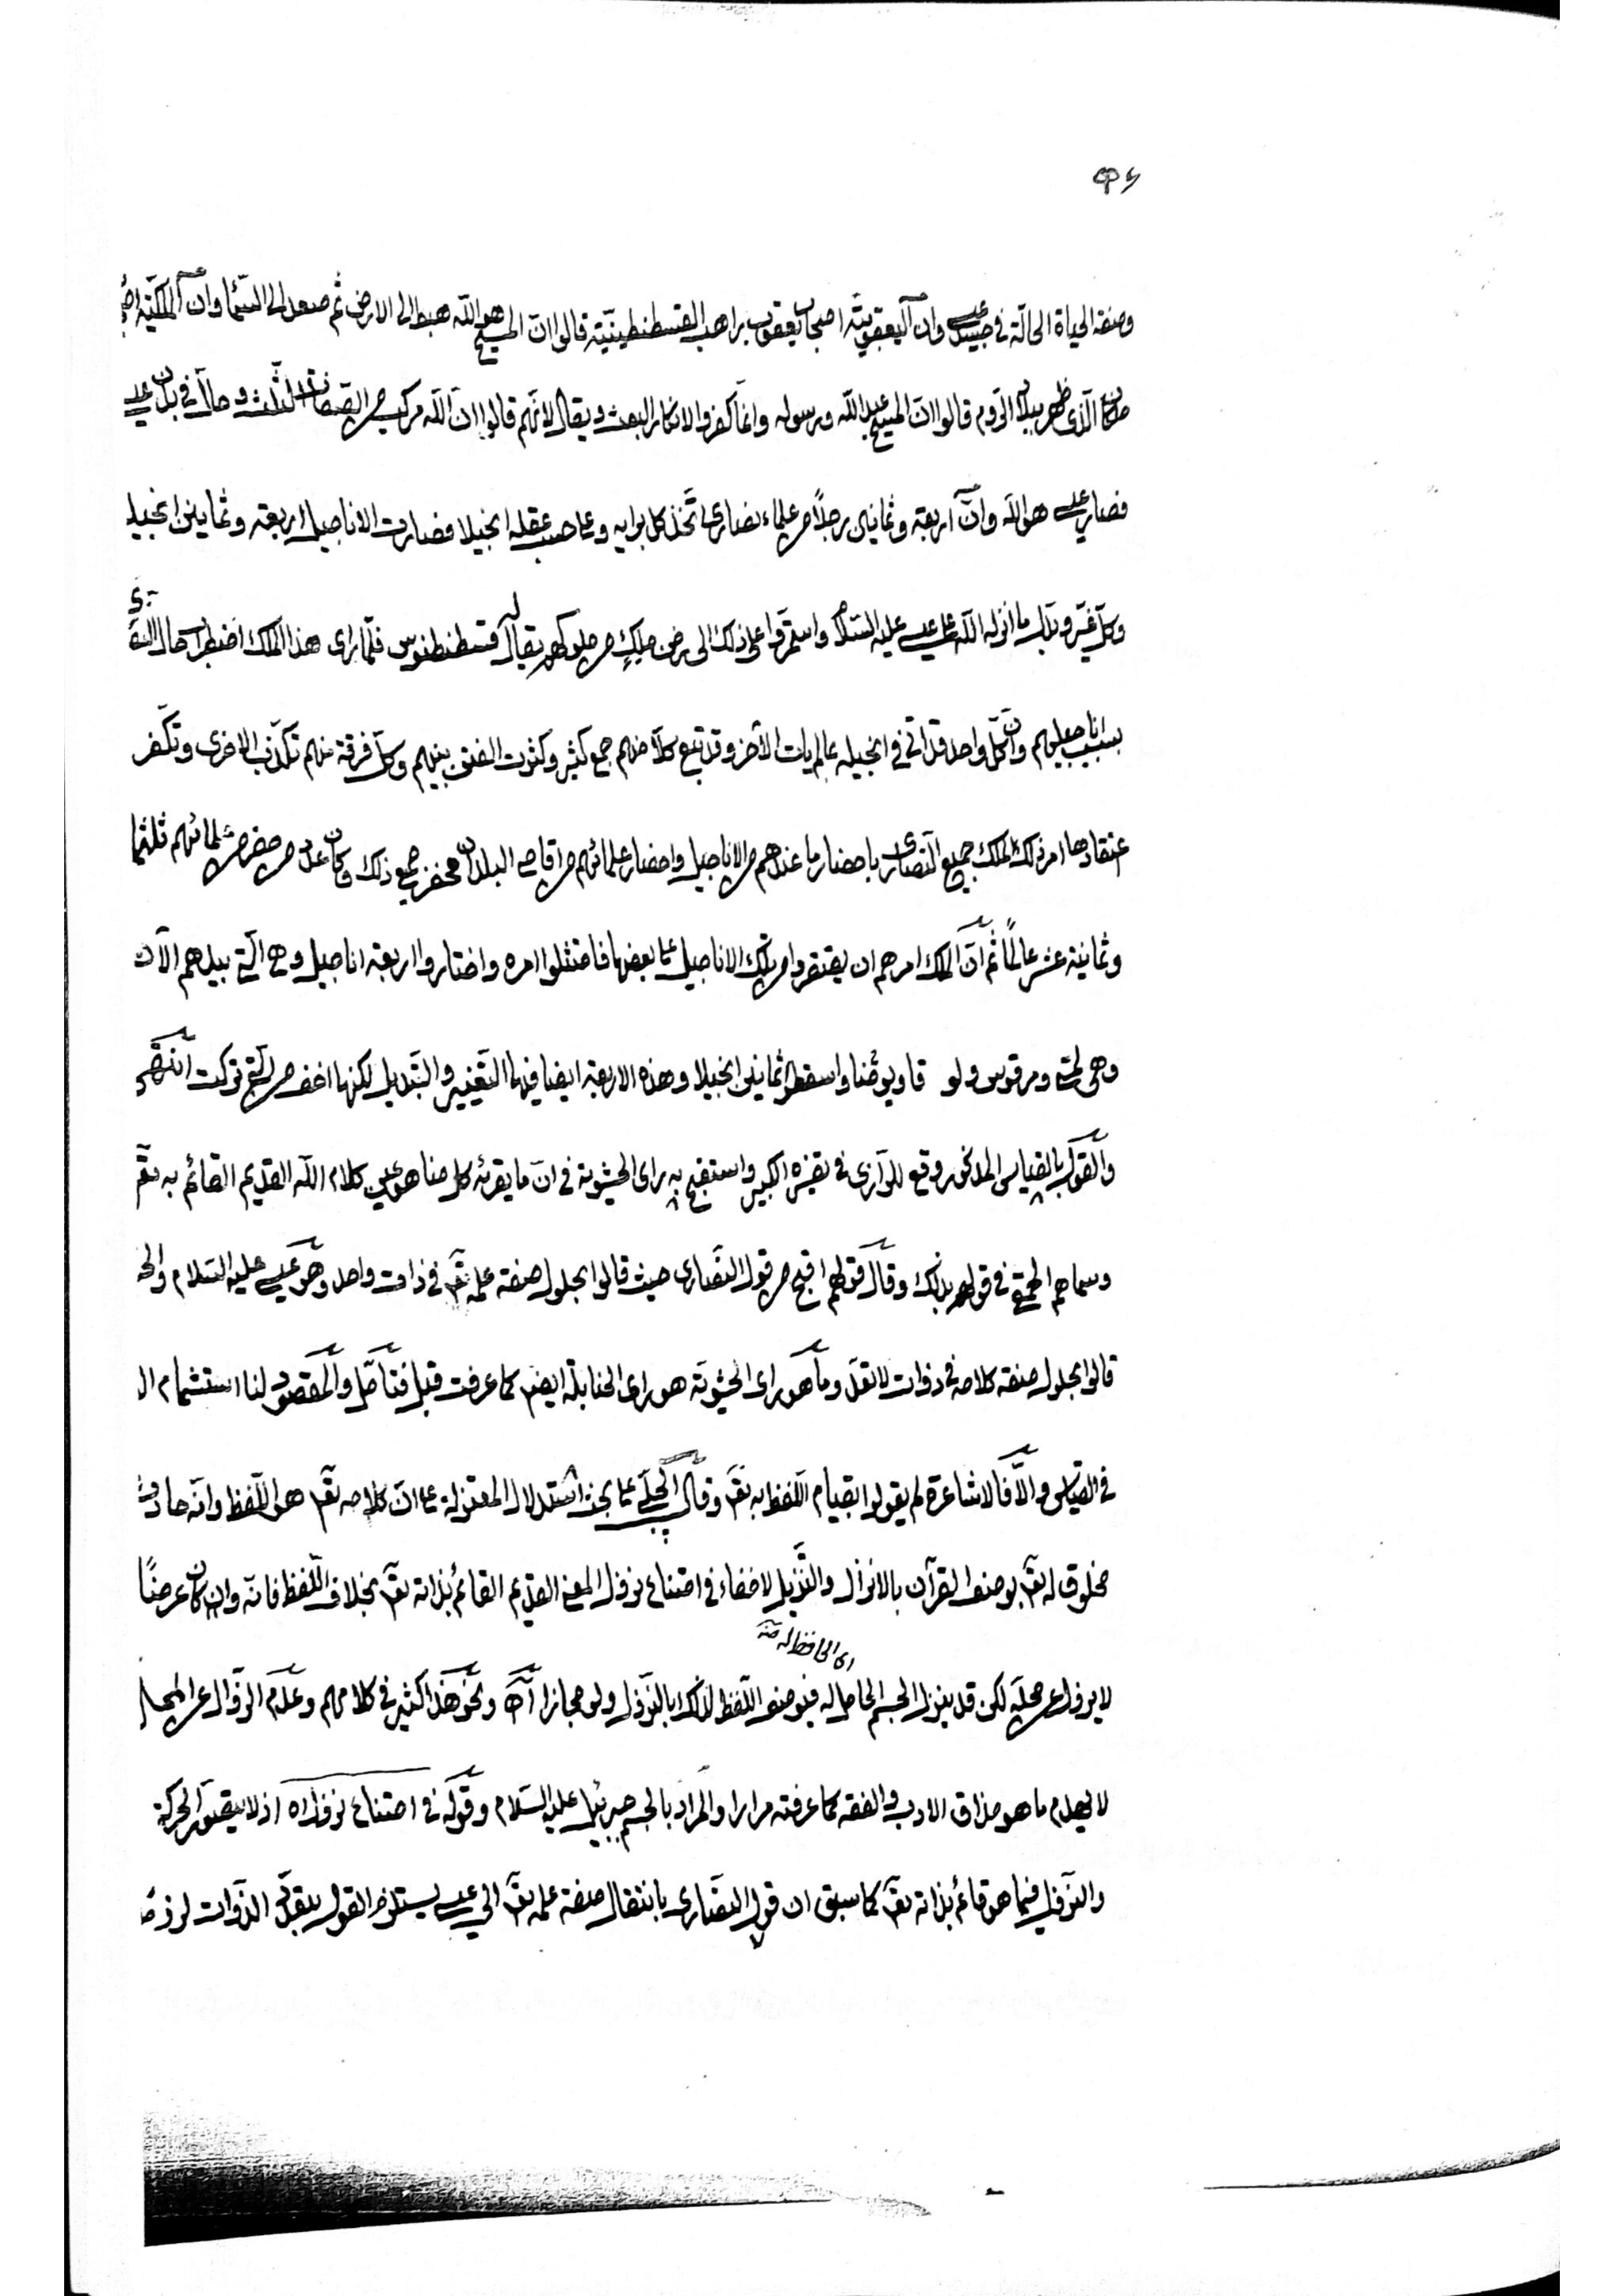 وصفة الحياة الحالّة في جسد عيسى وانّ اليعقوبيّة اصحاب يعقوب براهب القسطنطينيّة قالوا انّ المسيح هو اللّه هبط الى الارض ثم صعد الى السّماء وانّ الملكيّة
ملكان الّذى ظهر ببلاد الرّوم قالوا انّ المسيح عبد اللّه ورسوله وانّما كفروا لانكار البعث ويقال لانّهم قالوا انّ اللّه مركب من الصّفات الثّلث وحالّا في بدن عيسى
فصار عيسى هو اللّه وانّ اربعة وثمانين رجلاً من علماء نصارى اتّخذ كل برايه وعلى حسب عقله انجيلا فصارت الاناجيل اربعة وثمانين انجيلا
وكلّ غيّر وبدّل ما انزله اللّه على عيسى عليه السّلام واستمرّوا على ذلك الى زمن ملكٍ من ملوكهم يقال له قسطنطنوس فلمّا راى هذا الملك اضطراب حال النّصارى
بسبب اناجيلهم وانّ كلّ واحد قد اتى في انجيله بما لم يات الآخر وقد تبع كلاّ منهم جمع كثير وكثرت الفتن بينهم وكلّ فرقة منهم تكذّب الاخرى وتكفّر
اعتقادها امر ذلك الملك جميع النّصارى باحضار ما عندهم من الاناجيل واحضار علمائهم من اقاصى البلدان فحضر جميع ذلك وكان عدد من حضر من علمائهم ثلثمأ
وثمانية عشر عالمًا ثم انّ الملك امرهم ان يقتصروا من تلك الاناجيل على بعضها فامتثلوا امره واختاروا اربعة اناجيل وهى الّتى بيدهم الآن
وهى لمتى ومرقوس ولو قا ويوحنا واسقطوا ثمانين انجيلا وهذه الاربعة ايضا فيها التّغيير والتّبديل لكنها اخف من الّتى تركت انتهى
والقول بالقياس المذكور وقع للرّازى في تفسيره الكبير واستقبح به راى الحشوية في انّ ما يقرئه كل منا هو عين كلام اللّه القديم القائم به تعّ
وسماهم الحمقى في قولهم بذلك وقال قولهم اقبح من قول النّصارى حيث قالوا بحلول صفة علمه تعّ في ذات واحد وهو عيسى عليه السّلام والح
قالوا بحلول صفة كلامه في ذوات لا تعدّ وما هو راى الحشويّة هو راى الحنابلة ايضا كما عرفت قبل فتأمّل والمقصود لنا استشمام ال
في القياس والّا فالاشاعرة لم يقولوا بقيام اللّفظ به تعّ وقال الجلبى على بحث استدلال المعتزلة على انّ كلامه تعّ هو اللّفظ وانّه حادث
مخلوق له تعّ بوصف القرآن بالانزال والتّنزيل لا خفاء في امتناع نزول المعنى القديم القائم بذاته تعّ بخلاف اللّفظ فانّه وان كان عرضًا
اى الحافظ له منه
لا يزول عن محلّه لكن قد ينزل الجسم الحامل له فيوصف اللّفظ لذلك بالنّزول ولو مجازا اه ونحو هذا كثير في كلامهم وعدم الزّوال عن المحل
لا يهدم ما هو مذاق الادب والفقه كما عرفته مرارا والمراد بالجسم جبرئيل عليه السّلام وقوله في امتناع نزول اه اذ لا يتصوّر الحركة
والنّزول فيما هو قائم بذاته تعّ كما سبق ان قول النّصارى بانتقال صفة علمه تعّ الى عيسى يستلزم القول بتعدّد الذّوات